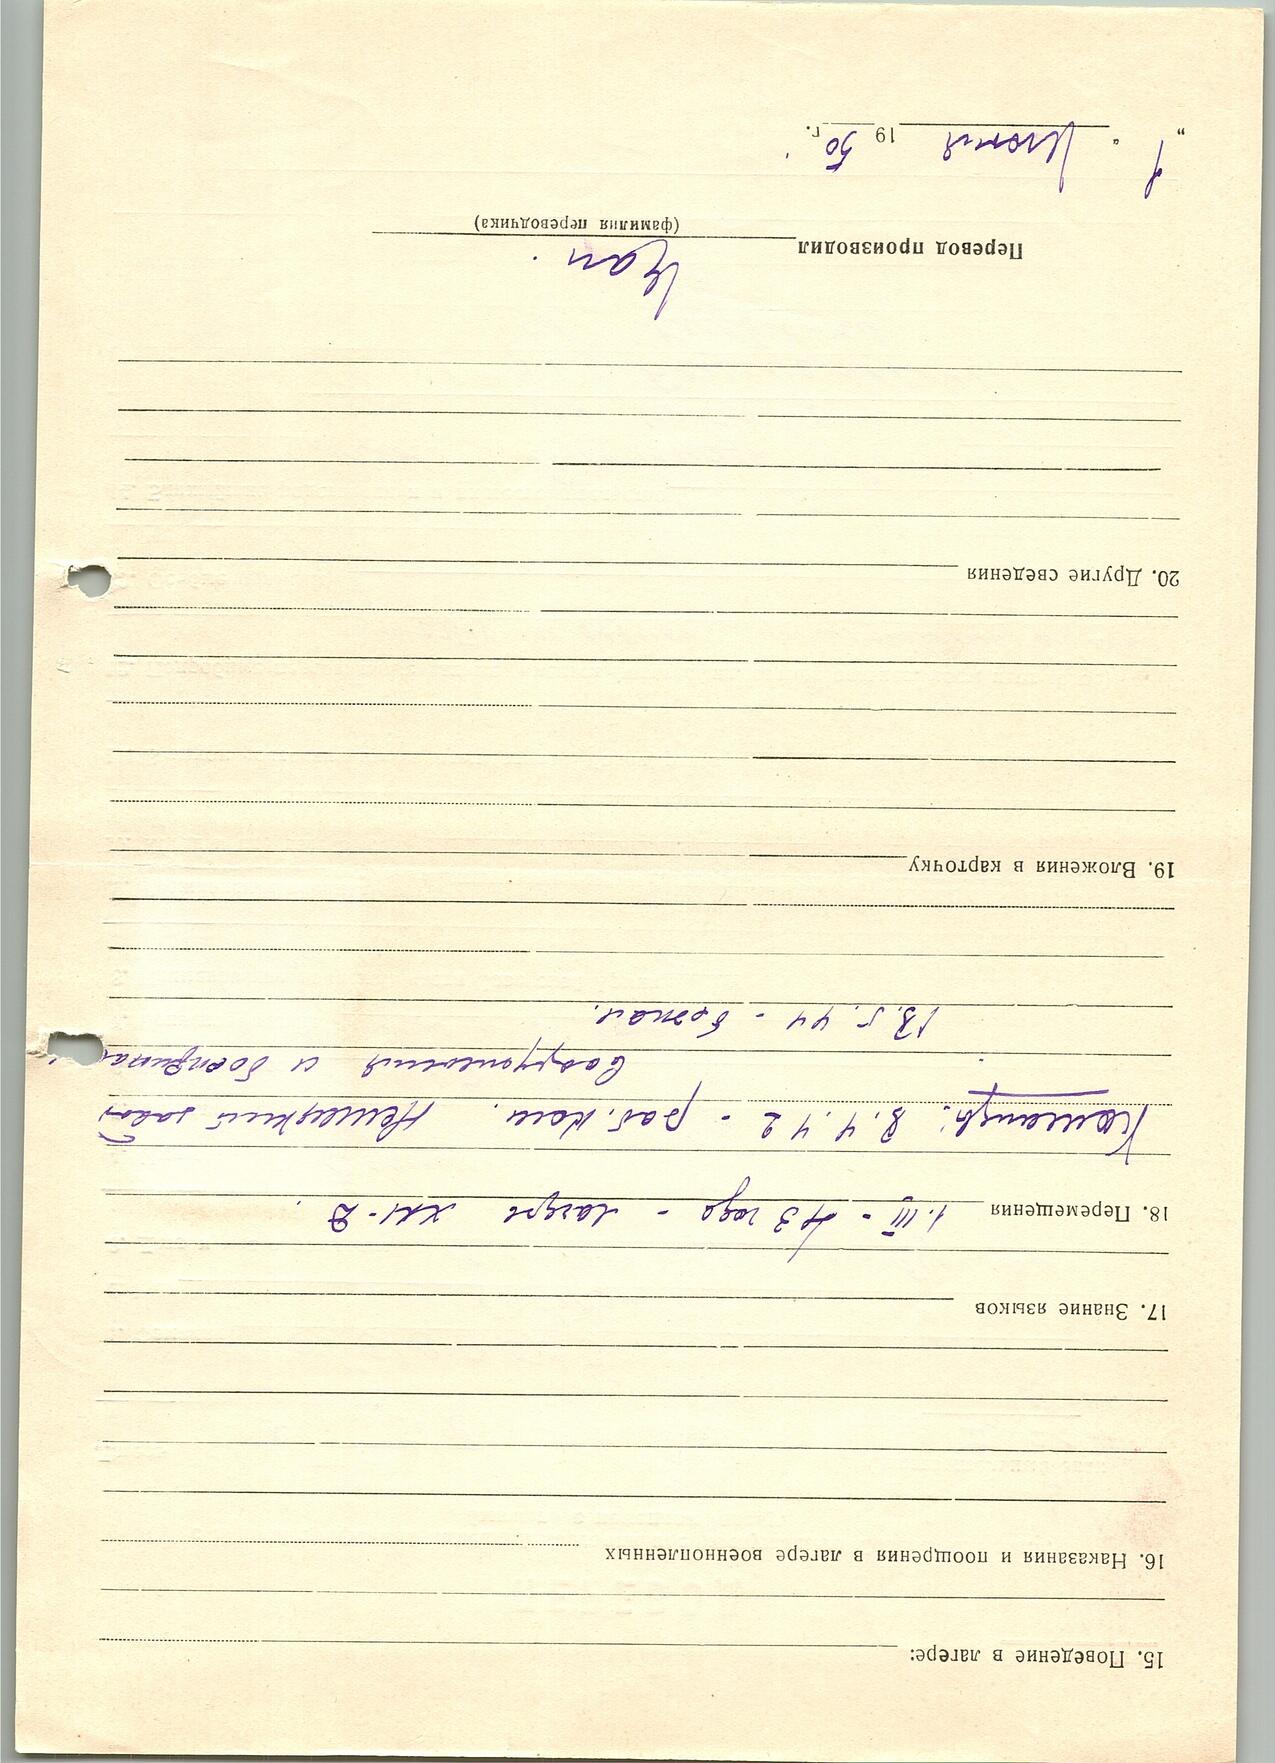 15. Поведение в лагере:
16. Наказания и поощрения в лагере военнопленных
17. Знание языков
18. Перемещения 1.III - 43 года - лагерь XII-D
8.4.42 - раб. ком. Немецкий завод
вооружения и боеприпас
13.5.44 - бежал.
19. Вложения в карточку
20. Другие сведения
Перевод производил
(фамилия переводчика)
" 1 " Июня 19 50 г.